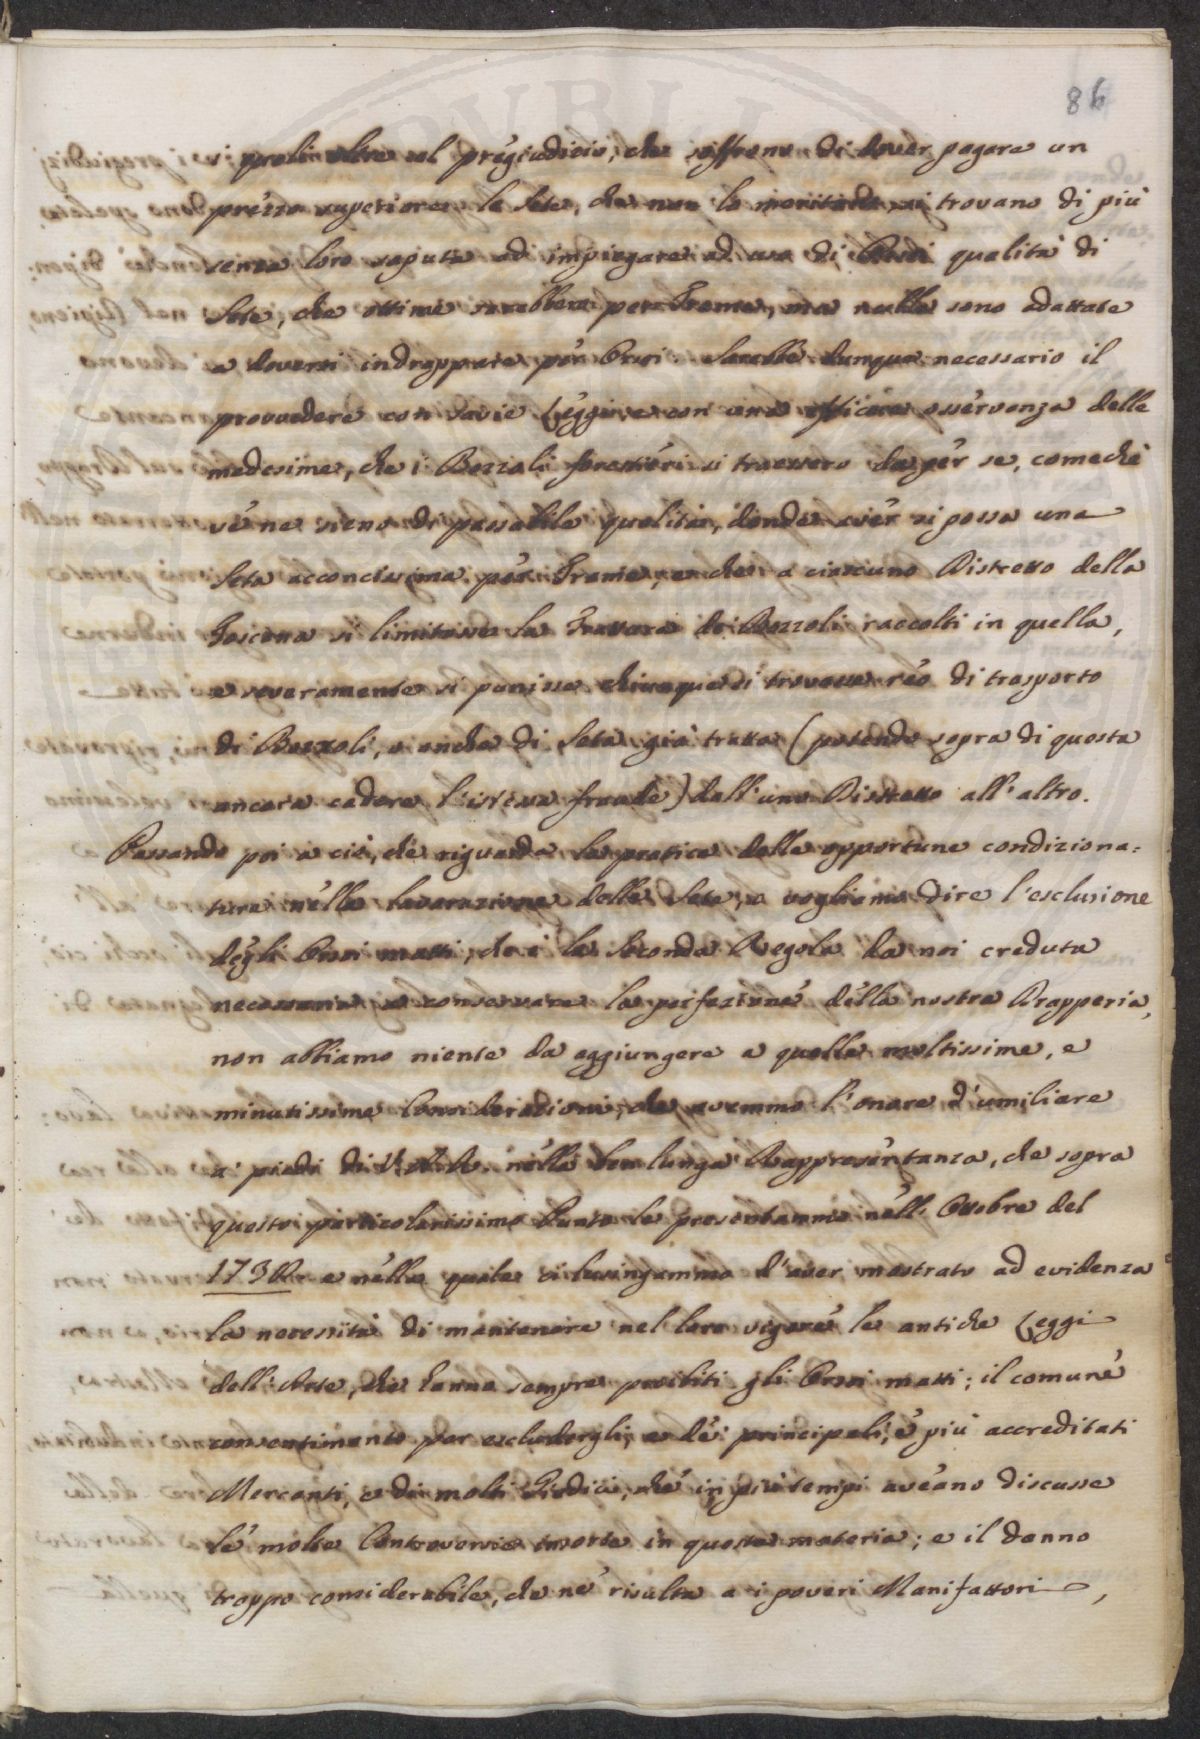 86
si pratin oltre al pregiudizio, che soffrono di dover pagare un
prezzo superiore le Sete, che non lo meritano si trovano di più
senza loro saputa ad impiegare ad uso di Orsoi qualità di
Sete, che ottime sarebbero per Trame, ma nulla sono adattate
a doversi indrappare per Orsoi. Sarebbe dunque necessario il
provvedere con savie Leggi, e con una efficace osservanza delle
medesime, che i Bozzoli forestieri si traessero da per se, comechè
ve ne sieno di passabile qualità, donde aver si possa una
Seta acconcissima per Trame, e che a ciascuno Distretto della
Toscana si limitasse la Trattura dei Bozzoli raccolti in quella,
e severamente si punisse chiunque si trovasse reo di trasporto
di Bozzoli, o anche di Seta già tratta (potendo sopra di questa
ancora cadere l'istessa fraude) dall'uno Distretto all'altro.
Passando poi a ciò, che riguarda la pratica delle opportune condiziona=
ture nella lavorazione delle Sete, o vogliamo dire l'esclusione
degli Orsoi matti, che è la seconda Regola da noi creduta
necessaria a conservare la perfezione della nostra Drapperia,
non abbiamo niente da aggiungere a quelle moltissime, e
minutissime Considerazioni, che avemmo l'onore d'umiliare
a' piedi di V. A. R. nella ben lunga Rappresentanza, che sopra
questo particolarissimo Punto le presentammo nell'Ottobre del
173 e nella quale ci lusingammo d'aver mostrato ad evidenza
la necessità di mantenere nel loro vigore le antiche Leggi
dell'Arte, che hanno sempre proibiti gli Orsoi matti; il comune
consentimento per escludergli, e de' principali, e più accreditati
Mercanti, e di molti Giudici, che in più tempi aveano discusse
le molte Controversie insorte in questa materia; e il danno
troppo considerabile, che ne risulta a i poveri Manifattori,